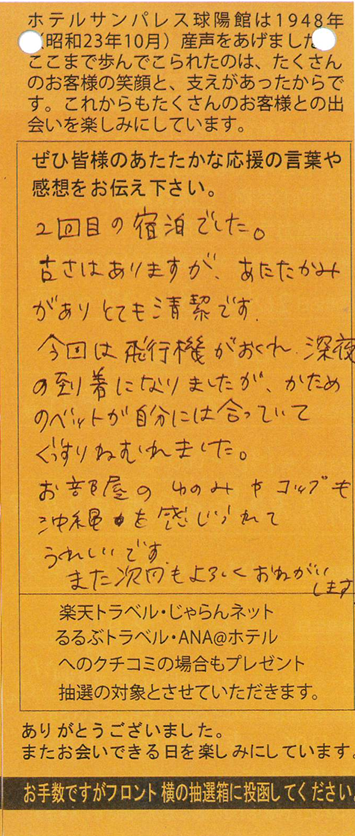 ホテルサンパレス球陽館は1948年
（昭和23年10月）産声をあげました
ここまで歩んでこられたのは、たくさん
のお客様の笑顔と、支えがあったからで
す。これからもたくさんのお客様との出
会いを楽しみにしています。
ぜひ皆様のあたたかな応援の言葉や
感想をお伝え下さい。
2回目の宿泊でした。
古さはありますが、あたたかみ
がありとても清潔です.
今回は飛行機がおくれ、深夜
の到着になりましたが、かため
のベットが自分には合っていて
ぐっすりねむれました。
お部屋のゆのみやコップも
沖縄を感じられて
うれしいです.
また次回もよろしくおねがい
します.
楽天トラベル・じゃらんネット
るるぶトラベル・ANA@ホテル
へのクチコミの場合もプレゼント
抽選の対象とさせていただきます。
ありがとうございました。
またお会いできる日を楽しみにしています。
お手数ですがフロント横の抽選箱に投函してください。